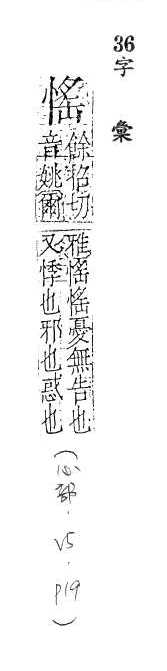 36
字彙
愮
餘招切
音姚爾
雅愮愮憂無告也
又悸也邪也惑也
(心部．V5．P19)